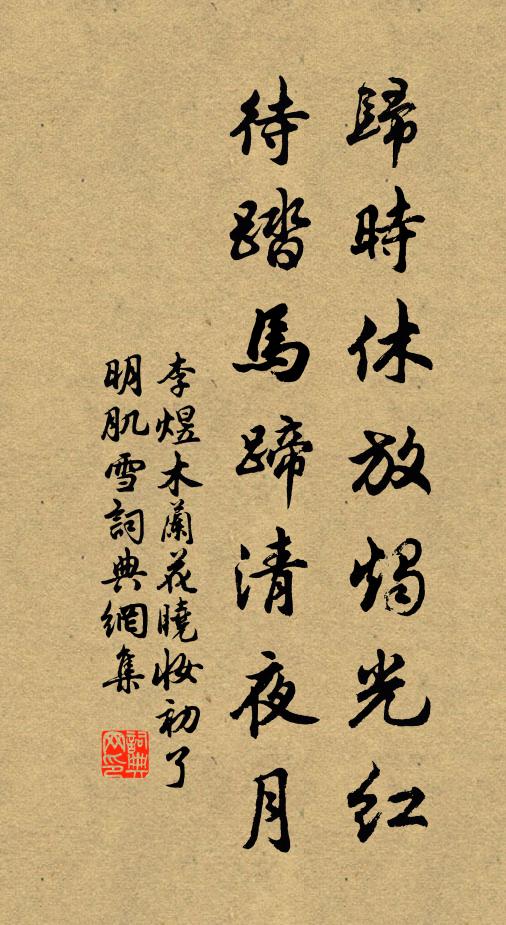 歸時休放燭光紅
待踏馬蹄清夜月
李煜木蘭花曉妝初了
明肌雪詞典網集
詞典
网印